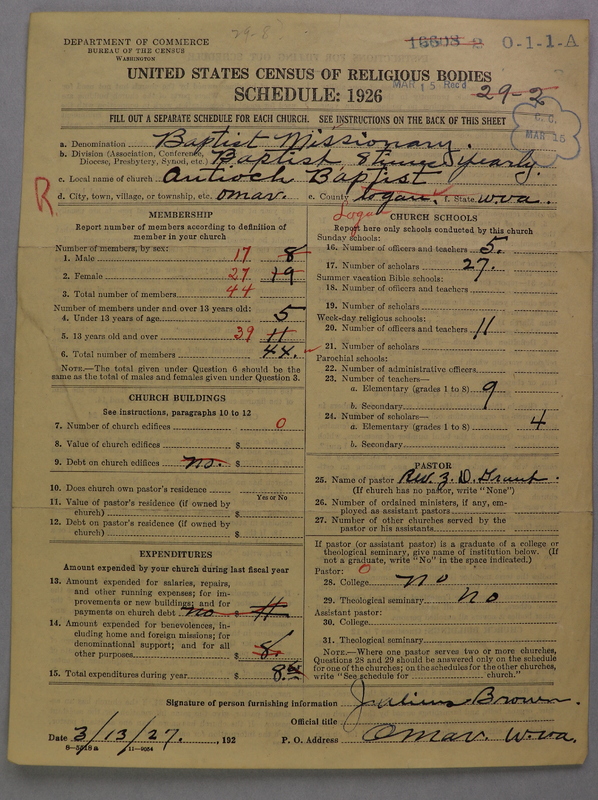 29-8
DEPARTMENT OF COMMERCE
BUREAU OF THE CENSUS
WASHINGTON
16608 2 0-1-1-A
UNITED STATES CENSUS OF RELIGIOUS BODIES
SCHEDULE: 1926
MAR 15 Rec'd 29-2
C. C.
MAR 16
FILL OUT A SEPARATE SCHEDULE FOR EACH CHURCH. SEE INSTRUCTIONS ON THE BACK OF THIS SHEET
a. Denomination Baptist Missionary.
b. Division (Association, Conference, Diocese, Presbytery, Synod, etc.) Baptist yearly.
c. Local name of church Antioch Baptist
R d. City, town, village, or township, etc. Omar. e. County Logan. f. State W.va.
Logan
MEMBERSHIP
Report number of members according to definition of
member in your church
Number of members, by sex:
1. Male 17 8
2. Female 27 19
3. Total number of members 44
Number of members under and over 13 years old:
4. Under 13 years of age 5
5. 13 years old and over 39 11
6. Total number of members 44.
NOTE.—The total given under Question 6 should be
same as the total of males and females given under Question 3.
CHURCH BUILDINGS
See instructions, paragraphs 10 to 12
7. Number of church edifices 0
8. Value of church edifices $
9. Debt on church edifices no. $
10. Does church own pastor's residence
Yes or No
11. Value of pastor's residence (if owned by
church) $
12. Debt on pastor's residence (if owned by
church) $
EXPENDITURES
Amount expended by your church during last fiscal year
13. Amount expended for salaries, repairs,
and other running expenses; for im-
provements or new buildings; and for
payments on church debt no $
14. Amount expended for benevolences, in-
cluding home and foreign missions; for
denominational support; and for all
other purposes $ 8.
15. Total expenditures during year $ 8.
CHURCH SCHOOLS
Report here only schools conducted by this church
Sunday schools:
16. Number of officers and teachers 5.
17. Number of scholars 27.
Summer vacation Bible schools:
18. Number of officers and teachers
19. Number of scholars
Week-day religious schools:
20. Number of officers and teachers 11
21. Number of scholars
Parochial schools:
22. Number of administrative officers
23. Number of teachers—
a. Elementary (grades 1 to 8) 9
b. Secondary
24. Number of scholars—
a. Elementary (grades 1 to 8) 4
b. Secondary
PASTOR
25. Name of pastor Rev. Z. D. Grant.
(If church has no pastor, write "None")
26. Number of ordained ministers, if any, em-
ployed as assistant pastors
27. Number of other churches served by the
pastor or his assistants
If pastor (or assistant pastor) is a graduate of a college or
theological seminary, give name of institution below. (If
not a graduate, write "No" in the space indicated.)
Pastor: 0
28. College no
29. Theological seminary no
Assistant pastor:
30. College
31. Theological seminary
NOTE.—Where one pastor serves two or more churches,
Questions 28 and 29 should be answered only on the schedule
for one of the churches; on the schedules for the other churches,
write "See schedule for church."
Signature of person furnishing information Julius Brown.
Official title
Date 3/13/27., 192 P. O. Address Omar. W.va.
8-5018a 11-9054